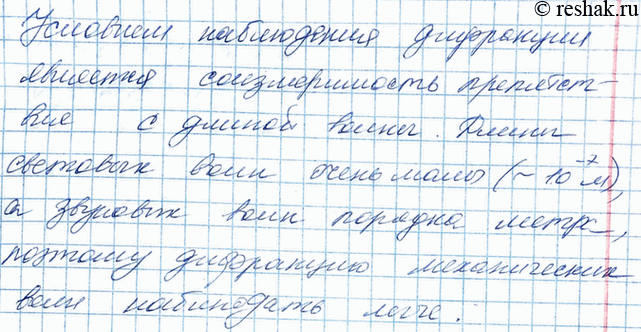 © reshak.ru
Условием наблюдения дифракции
является соизмеримость препятст-
вие с длиной волны. Длины
световых волн очень малы (~ 10⁻⁷ м),
а звуковых волн порядка метра,
поэтому дифракцию механических
волн наблюдать легче.